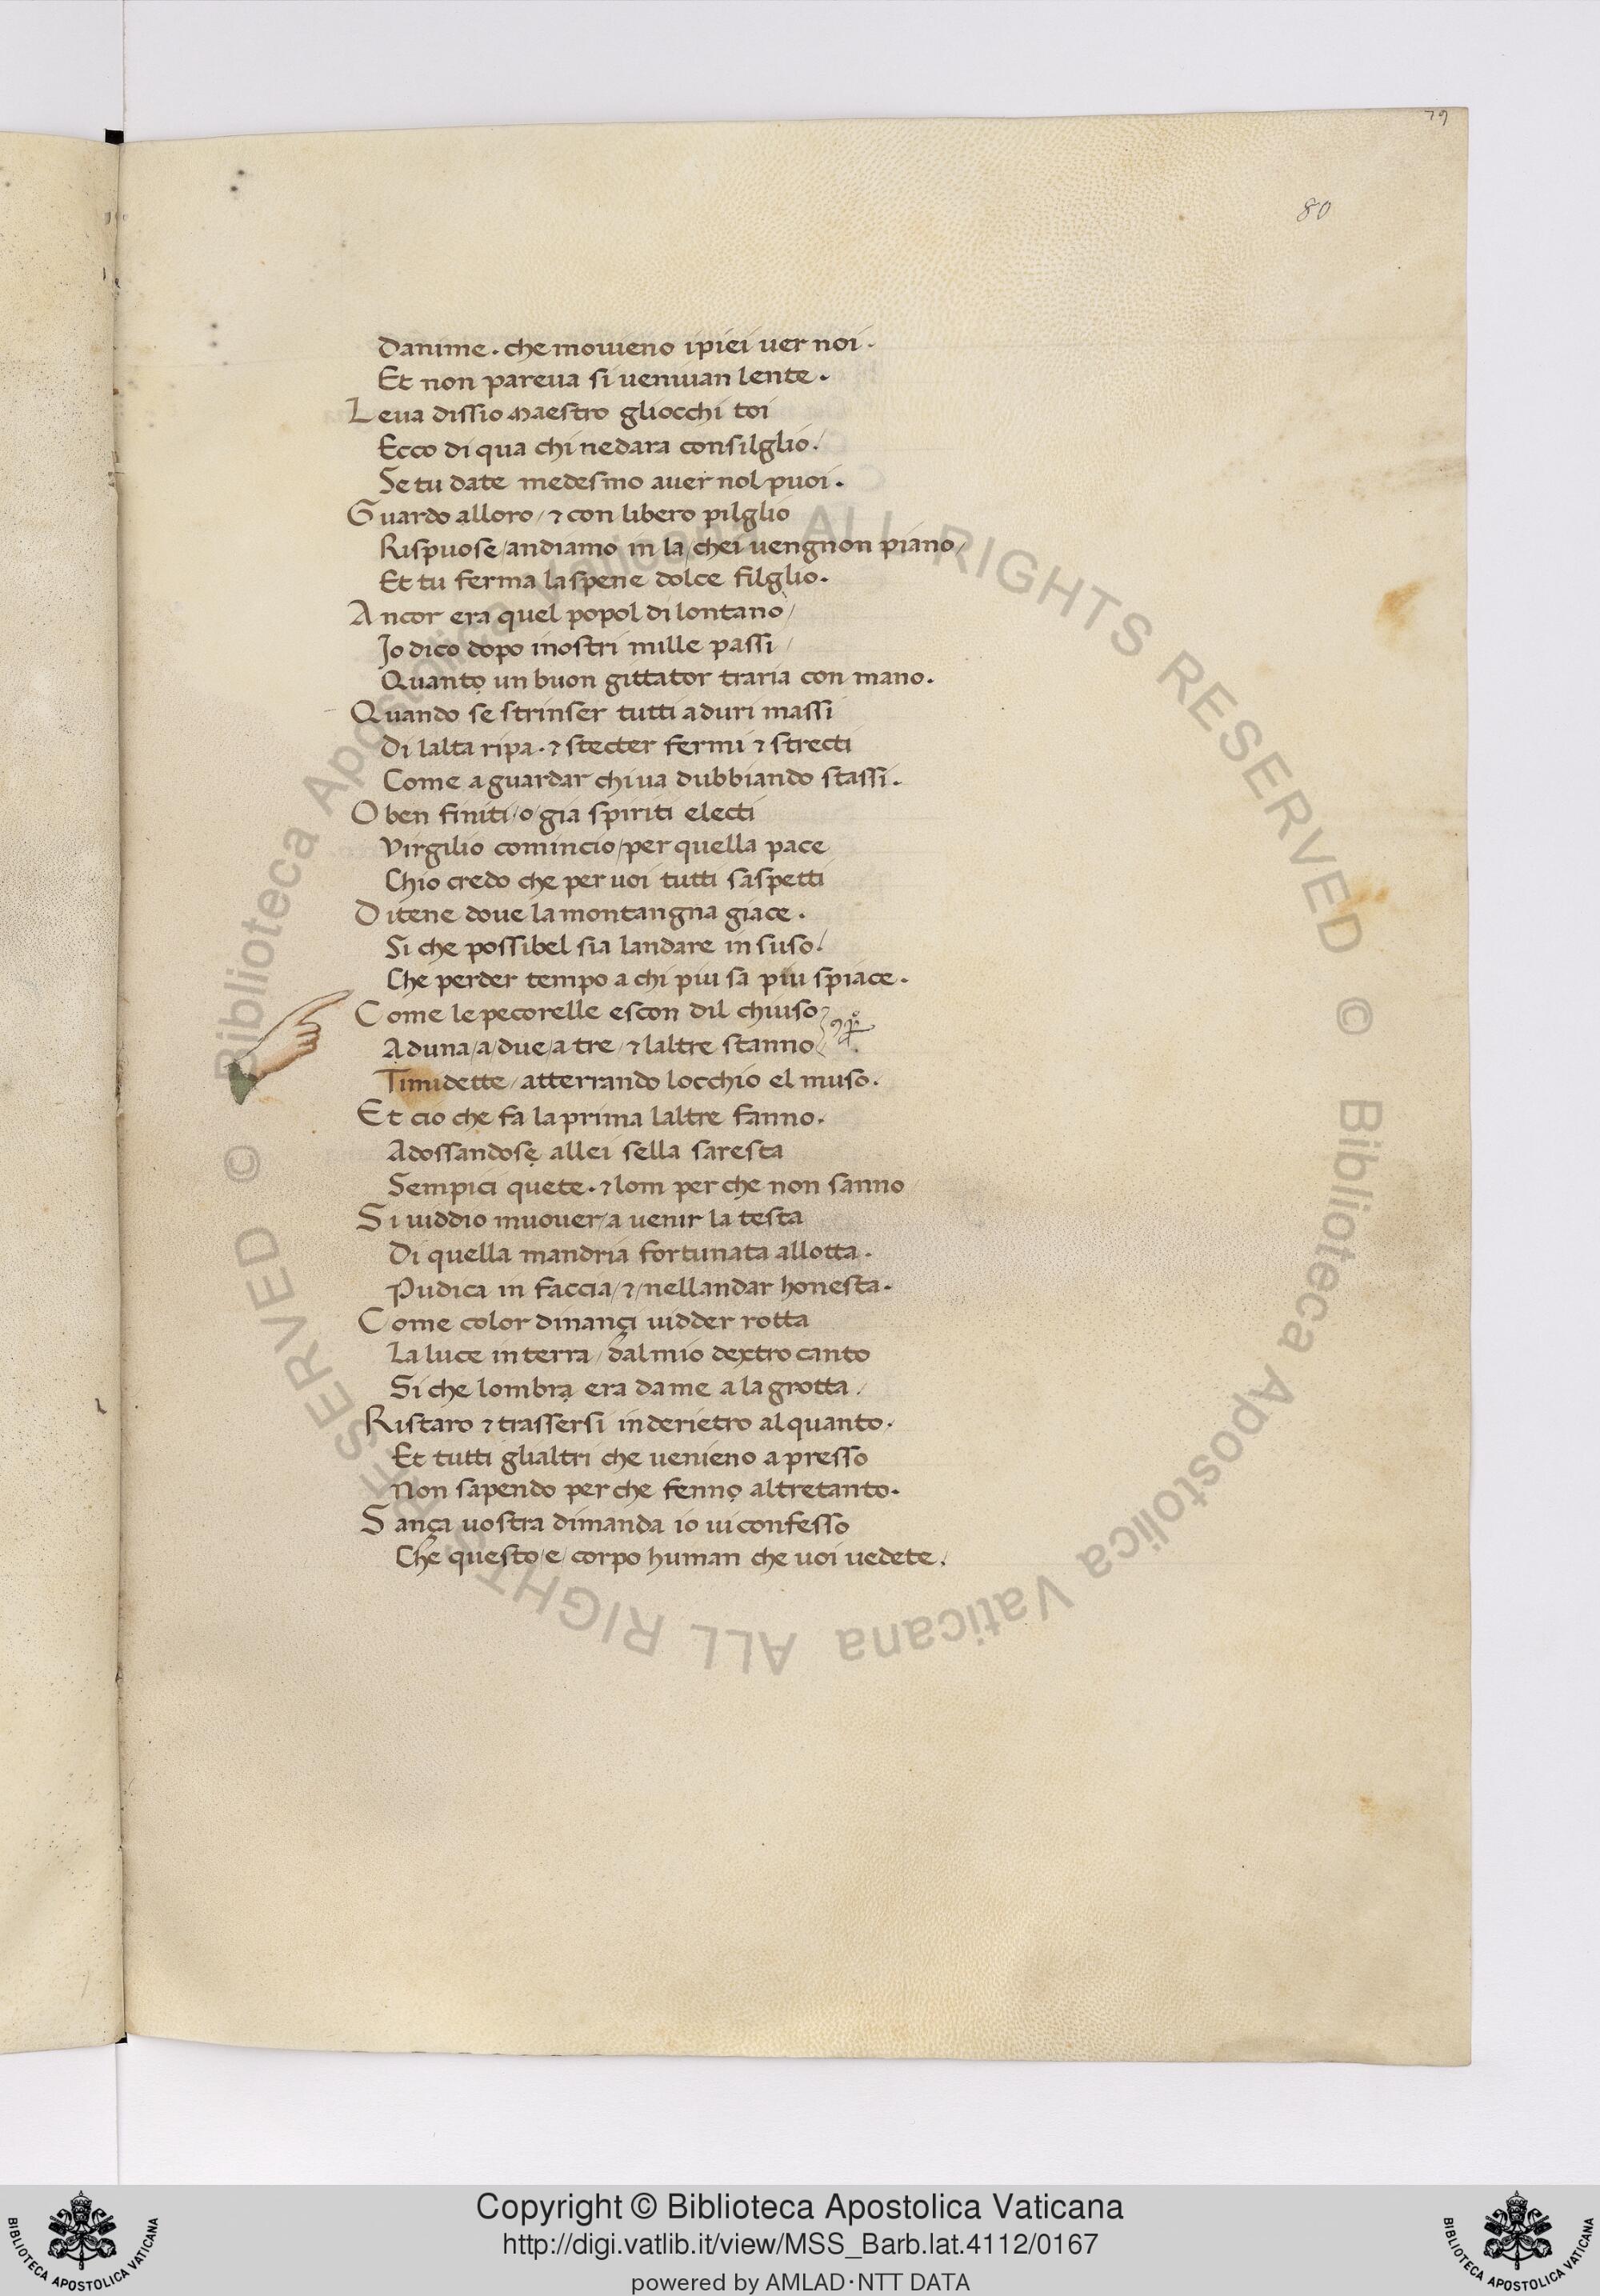 79
80
Danime · che moviieno ipiei uer noi ·
Et non pareua si ueniuan lente ·
Leua dissio maestro gliocchi toi
Ecco di qua chi nedara consilglio /
Se tu date medesmo auer nol puoi ·
Guardo alloro / ⁊ con libero pilglio
Rispuose / andiamo in la / chei uengnon piano /
Et tu ferma laspene dolce filglio ·
Ancor era quel popol dilontano /
Jo dico dopo inostri mille passi /
Quantọ un buon gittator traria con mano ·
Quando se strinser tutti aduri massi
Di lalta ripa · ⁊ stecter fermi ⁊ strecti
Come aguardar chiua dubbiando stassi ·
O ben finiti / o / gia spiriti electi
Virgilio comincio / per quella pace
Chio credo che per uoi tutti saspetti
Ditene doue la montangna giace ·
Si che possibel sia landare in suso /
Che perder tempo a chi piu sa piu spiace ·
Come le pecorelle escon dil chiuso
Aduna / a / due / a tre / ⁊ laltre stanno
Timidette / atterrando locchio el muso ·
Et cio che fa la prima laltre fanno ·
Adossandosẹ allei sella saresta
Sempici quete · ⁊ lom per che non sanno
Si uiddio muouer / a uenir la testa
Di quella mandria fortunata allotta ·
Pudica in faccia / ⁊ / nellandar honesta ·
Come color dinançi uidder rotta
La luce in terra / dal mio dextro canto
Si che lombrạ era da me a la grotta /
Ristaro ⁊ trassersi inderietro alquanto ·
Et tutti glialtri che uenieno apresso
Non sapendo per che fennọ altretanto ·
Sança uostra dimanda io ui confesso
Che questo / e / corpo human che uoi uedete ·
© Biblioteca Apostolica Vaticana ALL RIGHTS RESERVED © Biblioteca Apostolica Vaticana ALL RIGHTS RESERVED
Copyright © Biblioteca Apostolica Vaticana
http://digi.vatlib.it/view/MSS_Barb.lat.4112/0167
powered by AMLAD·NTT DATA
BIBLIOTECA APOSTOLICA VATICANA
BIBLIOTECA APOSTOLICA VATICANA